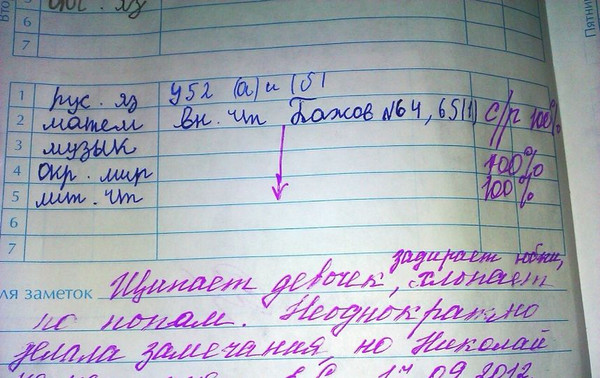 6
7
1 рус. яз У52 (а) и (б)
2 матем вн. чт Бажов №64, 65(1) с/р 100%
3 музык
4 окр. мир 100%
5 лит. чт 100%
6
7
задирает юбки,
ля заметок Щипает девочек, хлопает
по попам. Неоднократно
делала замечания, но Николай
17.09.2012